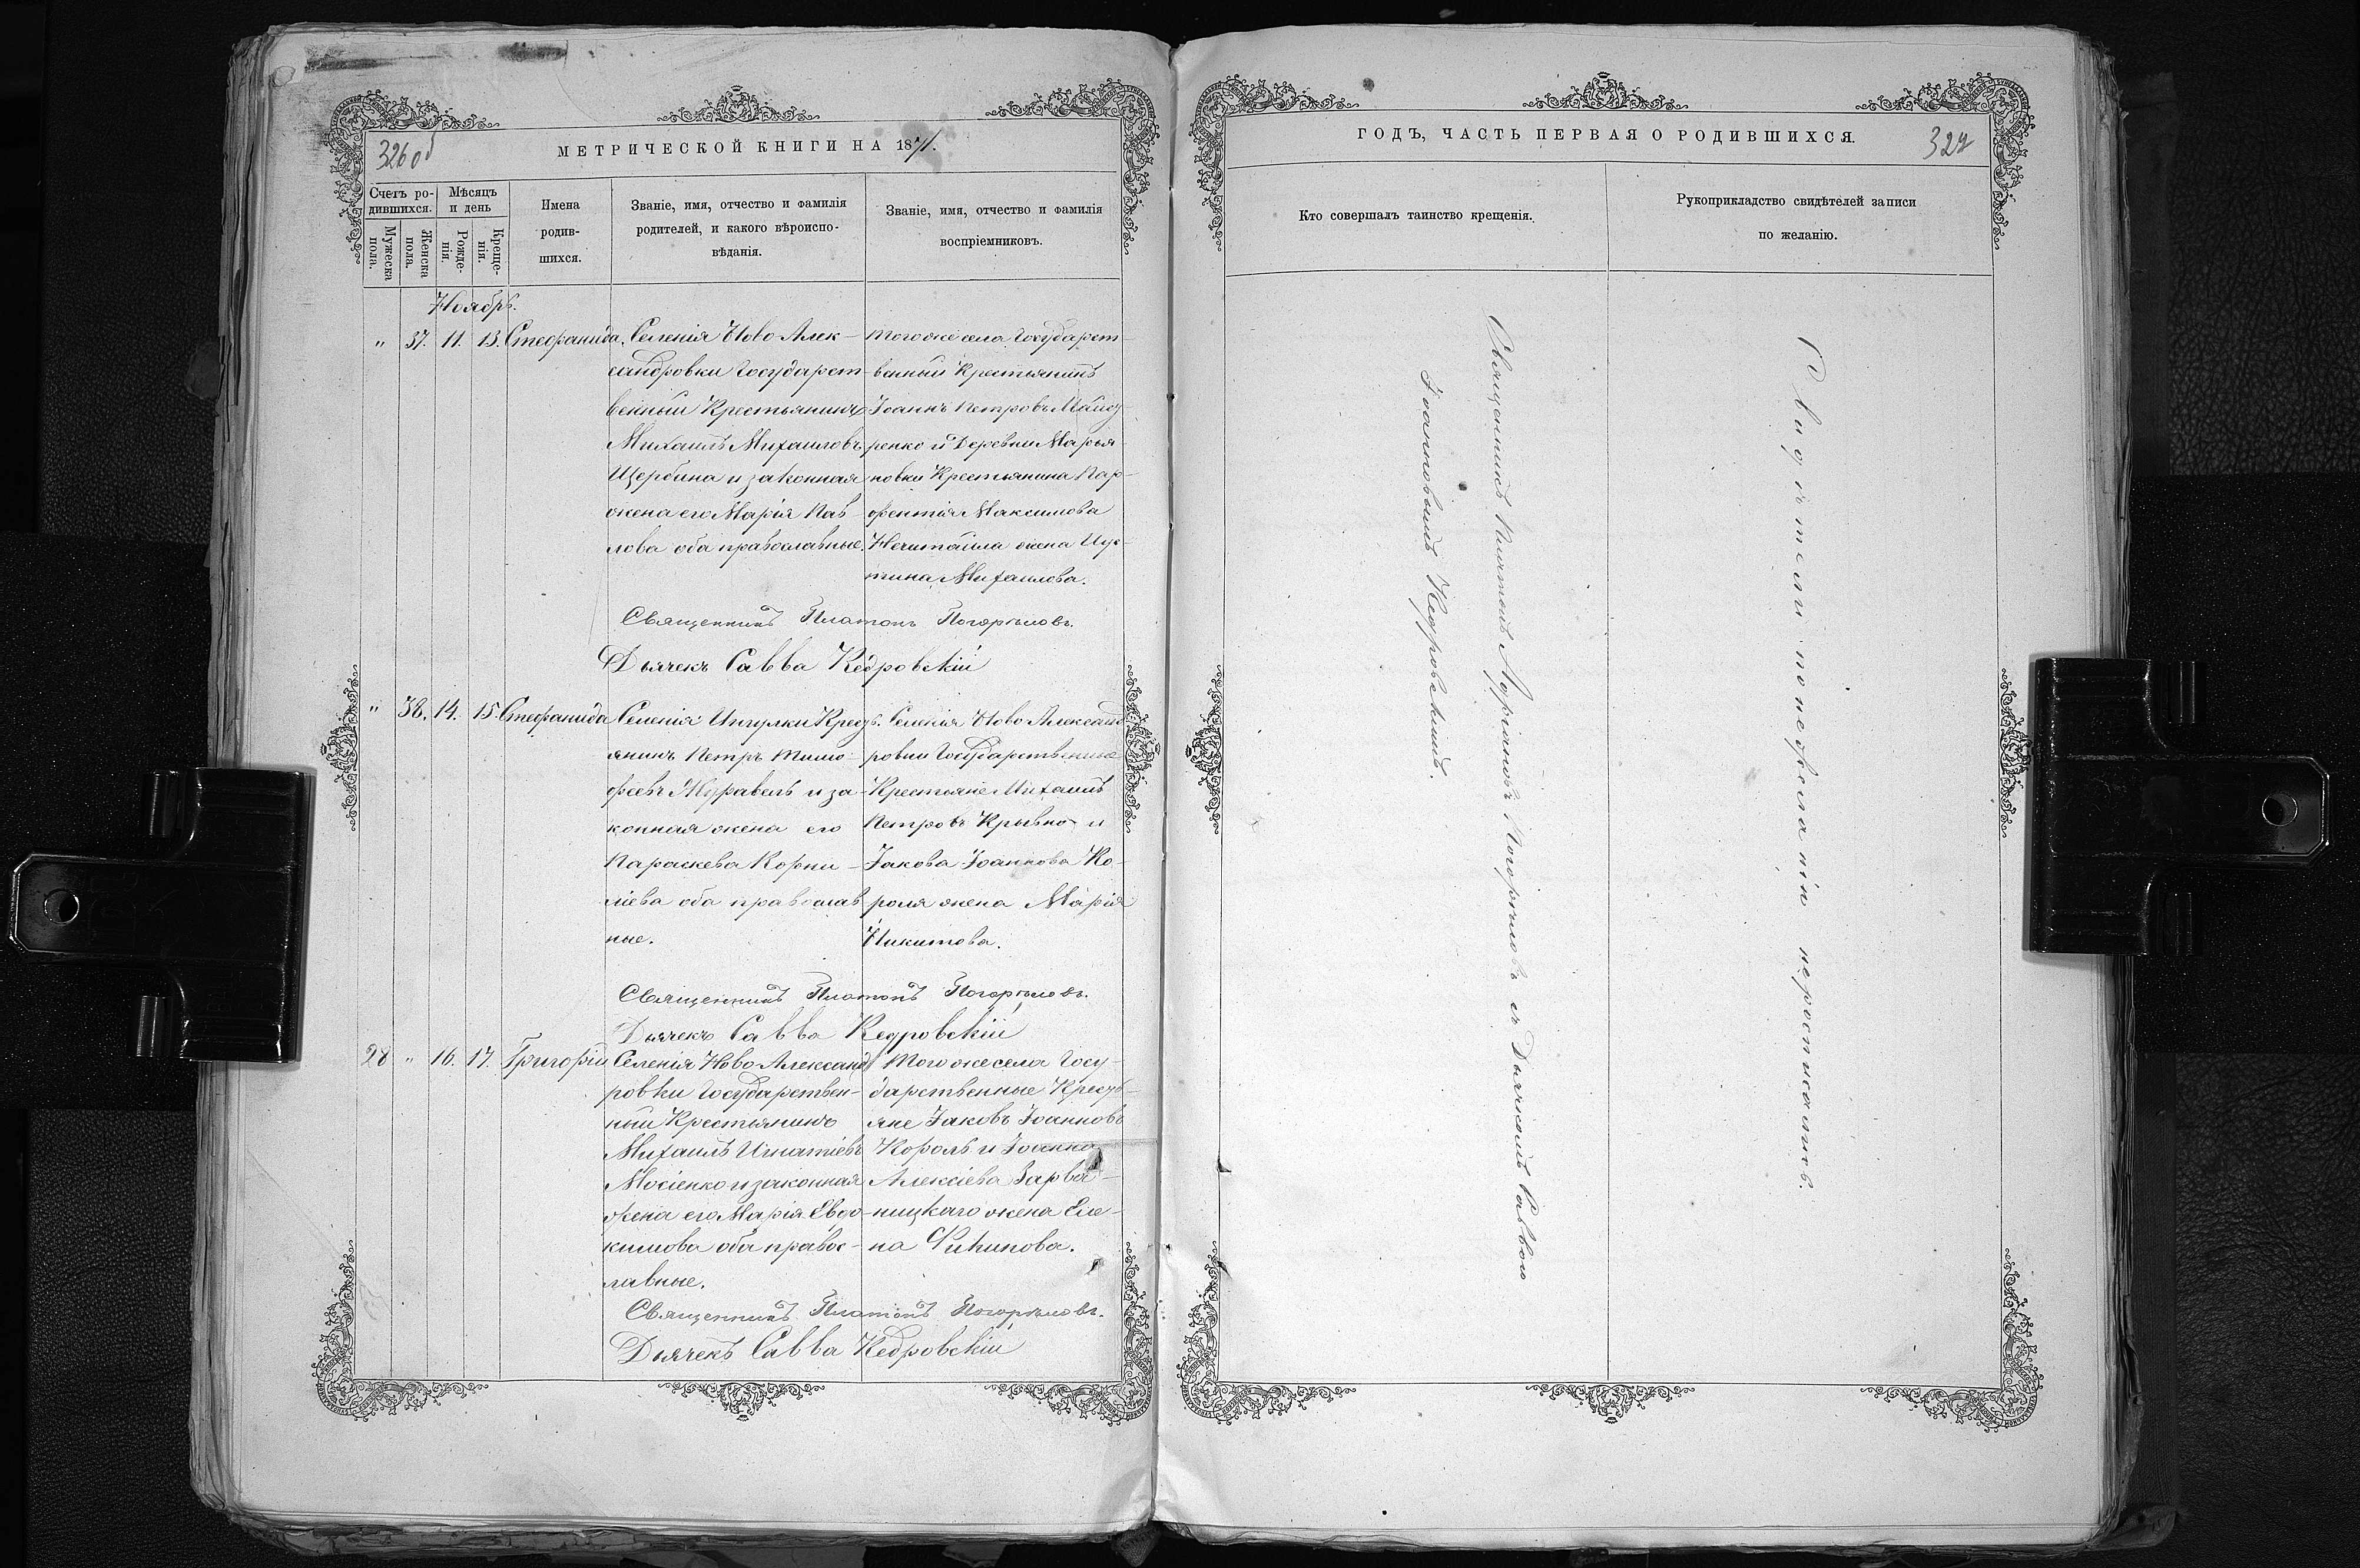 326 об
МЕТРИЧЕСКОЙ КНИГИ НА 1871.
Счетъ ро-
дившихся.
Мужеска
пола.
Женска
пола.
Мѣсяцъ
и день
Рожде-
нія.
Креще-
нія.
Имена
родив-
шихся.
Званіе, имя, отчество и фамилія
родителей, и какого вѣроиспо-
вѣданія.
Званіе, имя, отчество и фамилія
воспріемниковъ.
Ноябрь.
" 37. 11. 13. Стефанида.
Селенія Ново Алек-
сандровки Государст-
венный Крестьянинъ
Михаилъ Михаиловъ
Щербина и законная
жена его Марія Пав-
лова оба православные.
Тогоже села Государст-
венный Крестьянинъ
Іоаннъ Петровъ
ренко и Деревни Марья-
новки Крестьянина Пар-
фентія Максимова
Нечитайла жена Иус-
тина Михаилова.
Священникъ Платонъ Погорѣловъ.
Дьячекъ Савва Кедровскій
" 38. 14. 15. Стефанида
Селенія Ингулки Кресть-
янинъ Петръ Тимо-
феевъ Журавель и за-
конная жена его
Параскева Корни-
ліева оба православ
ные.
Селенія Ново Александ-
ровки Государственные
Крестьяне Михаилъ
Петровъ и
Іакова Іоаннова Ко-
роля жена Марія
Никитова.
Священникъ Платонъ Погорѣловъ.
Дьячекъ Савва Кедровскій
28 " 16. 17. Григорій
Селенія Ново Александ
ровки Государствен-
ный Крестьянинъ
Михаилъ Игнатіевъ
Мосіенко и законная
жена его Марія Евдо-
кимова оба правос-
лавные.
Того же села Госу-
дарственные Кресть-
яне Іаковъ Іоанновъ
Король и Іоанна
Алексіева Зарва-
ницкаго жена Еле-
на
Священникъ Платонъ Погорѣловъ.
Дьячекъ Савва Кедровскій
ГОДЪ, ЧАСТЬ ПЕРВАЯ О РОДИВШИХСЯ.
327
Кто совершалъ таинство крещенія.
Рукоприкладство свидѣтелей записи
по желанію.
Священникъ Платонъ Погорѣловъ съ Дьячкомъ Саввою
Іоанновымъ Кедровскимъ.
Свидѣтели по нежеланію нероспи